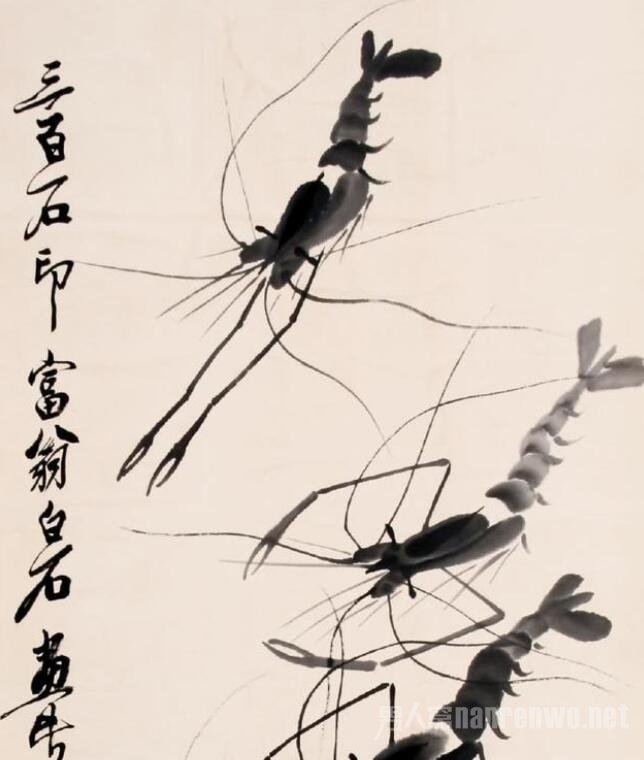 三百石印富翁白石画
男人窝nanrenwo.net